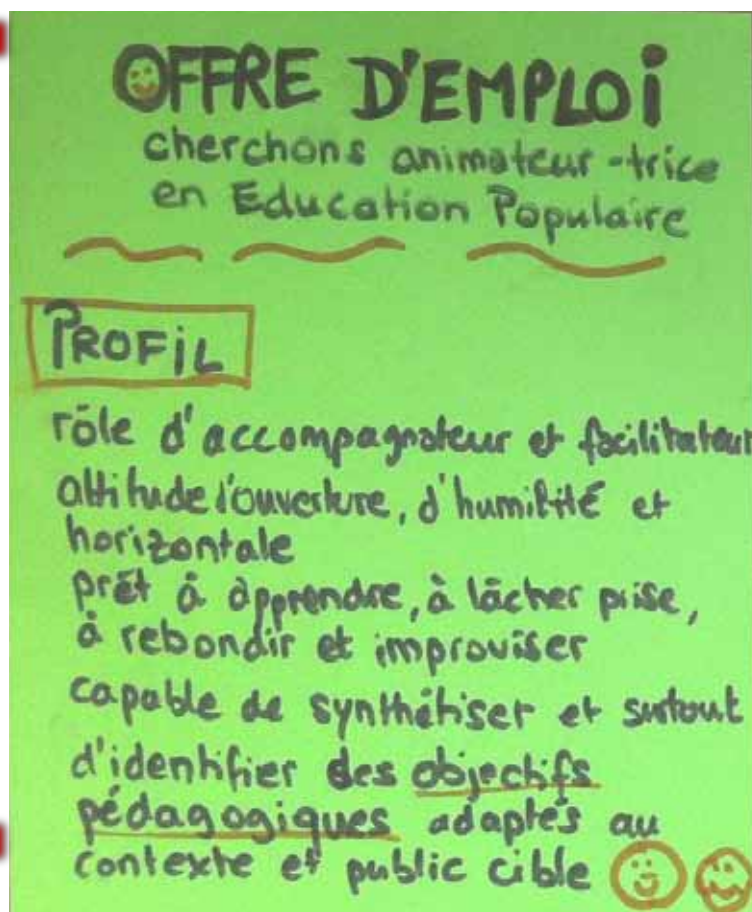 OFFRE D'EMPLOi
cherchons animateur-trice
en Education Populaire
PROFiL
rôle d'accompagnateur et facilitateur
attitude d'ouverture, d'humilité et
horizontale
prêt à apprendre, à lâcher prise,
à rebondir et improviser
capable de synthétiser et surtout
d'identifier des objectifs
pédagogiques adaptés au
contexte et public cible